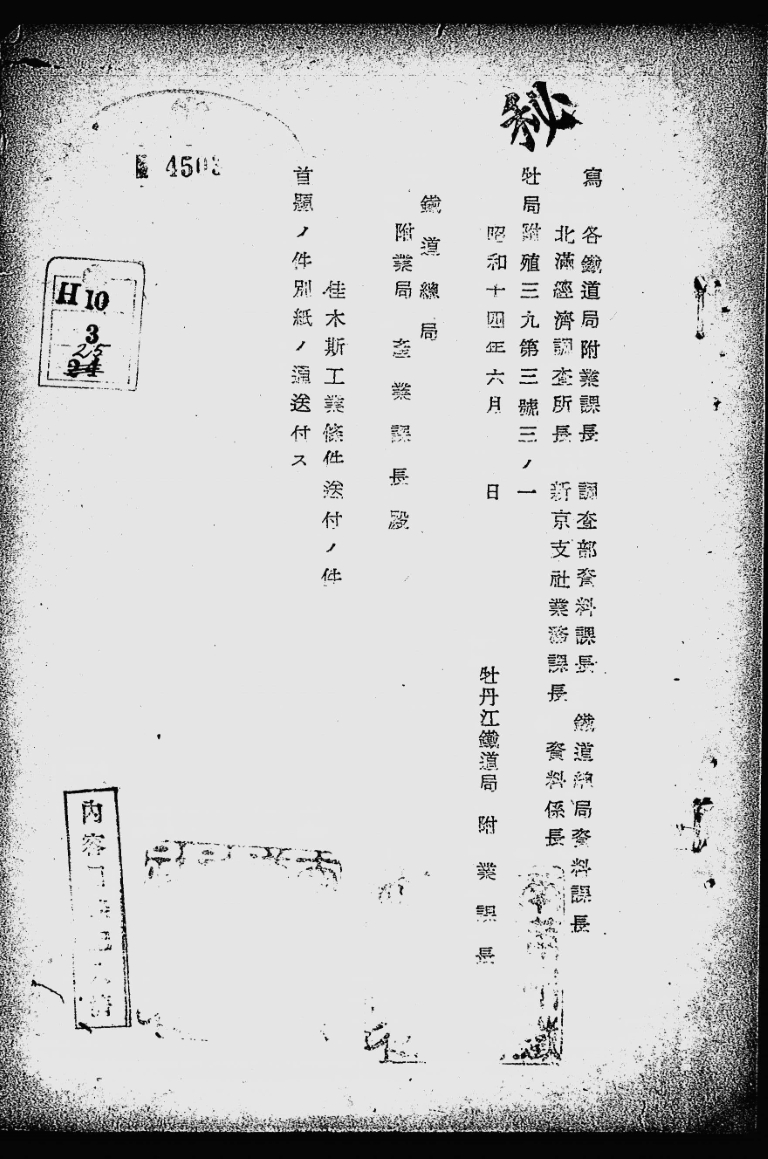 秘
寫 各鐵道局附業課長 調査部資料課長 鐵道總局資料課長
北滿經濟調査所長 新京支社業務課長 資料係長
牡局附殖三九第三號三ノ一
昭和十四年六月 日
牡丹江鐵道局 附業課長
鐵道總局
附業局 産業課長殿
佳木斯工業條件送付ノ件
首題ノ件別紙ノ通送付ス
4503
H 10
3
25
24
内容